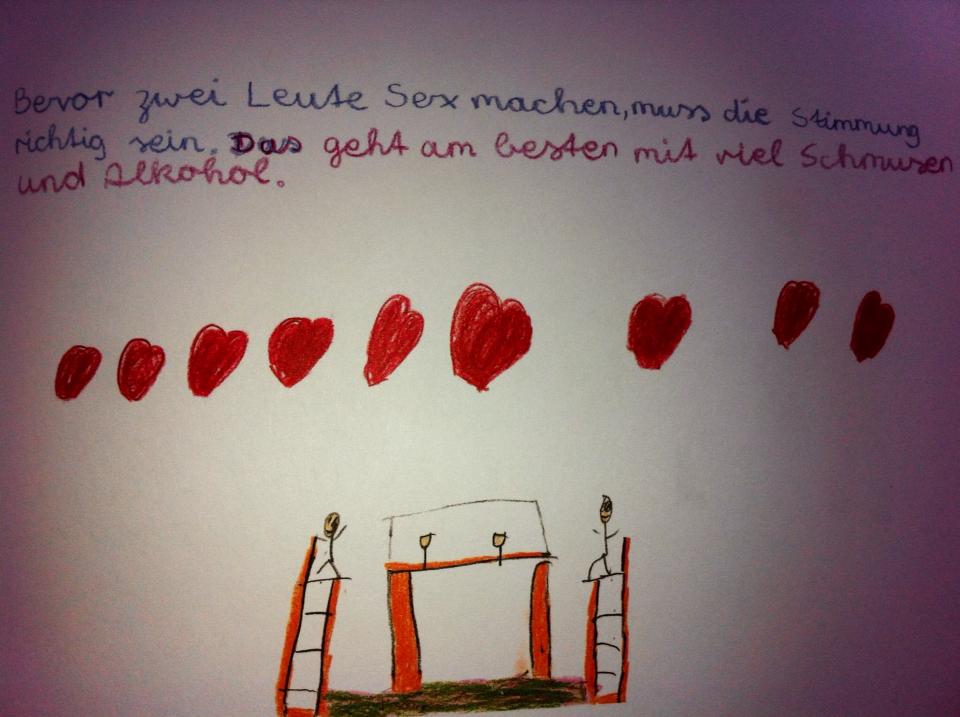 Bevor zwei Leute Sex machen, muss die Stimmung
richtig sein. Das geht am besten mit viel Schmusen
und Alkohol.